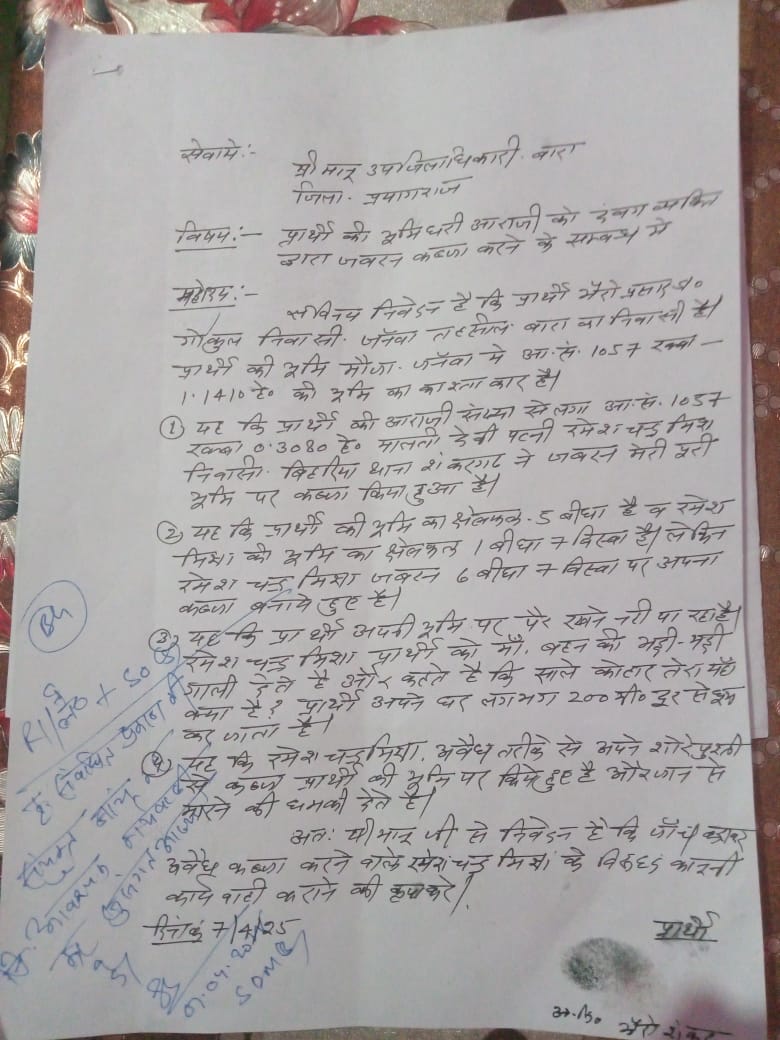 सेवामे:-
श्रीमान् उपजिलाधिकारी. बारा
जिला. प्रयागराज
विषय:- प्रार्थी की भूमिधरी आराजी को दबंग व्यक्ति
द्वारा जबरन कब्जा करने के सम्बन्ध में
महोदय:-
सविनय निवेदन है कि प्रार्थी भैरो प्रसाद
गोकुल निवासी. जनवा तहसील. बारा का निवासी है।
प्रार्थी की भूमि मौजा. जनवा मे आ.सं. 1057 रकबा -
1.1410 हे० की भूमि का काश्तकार है।
① यह कि प्रार्थी की आराजी संख्या से लगा आ.सं. 1057
रकबा 0.3080 हे० मालती देवी पत्नी रमेश चन्द्र मिश्र
निवासी. बिहरिया थाना शंकरगढ ने जबरन मेरी पूरी
भूमि पर कब्जा किया हुआ है।
② यह कि प्रार्थी की भूमि का क्षेत्रफल. 5 बीघा है व रमेश
मिश्रा की भूमि का क्षेत्रफल 1 बीघा 7 बिस्वा है। लेकिन
रमेश चन्द्र मिश्रा जबरन 6 बीघा 7 बिस्वा पर अपना
कब्जा बनाये हुए है।
③ यह कि प्रार्थी अपनी भूमि पर पैर रखने नही पा रहा है।
रमेश चन्द्र मिश्रा प्रार्थी को माँ, बहन की भद्दी-भद्दी
गाली देते है और कहते है कि साले कोहार तेरा यहाँ
क्या है? प्रार्थी अपने घर लगभग 200 मी० दूर से घूम
कर जाता है।
④ यह कि रमेश चन्द्र मिश्रा. अवैध तरीके से अपने
से कब्जा प्रार्थी की भूमि पर किये हुए है और जान से
मारने की धमकी देते है।
अतः श्रीमान् जी से निवेदन है कि जाँच कराकर
अवैध कब्जा करने वाले रमेश चन्द्र मिश्रा के विरूद्ध कानूनी
कार्यवाही कराने की कृपा करे।
दिनांक 7/4/25
प्रार्थी
R1/ + SO
SDM